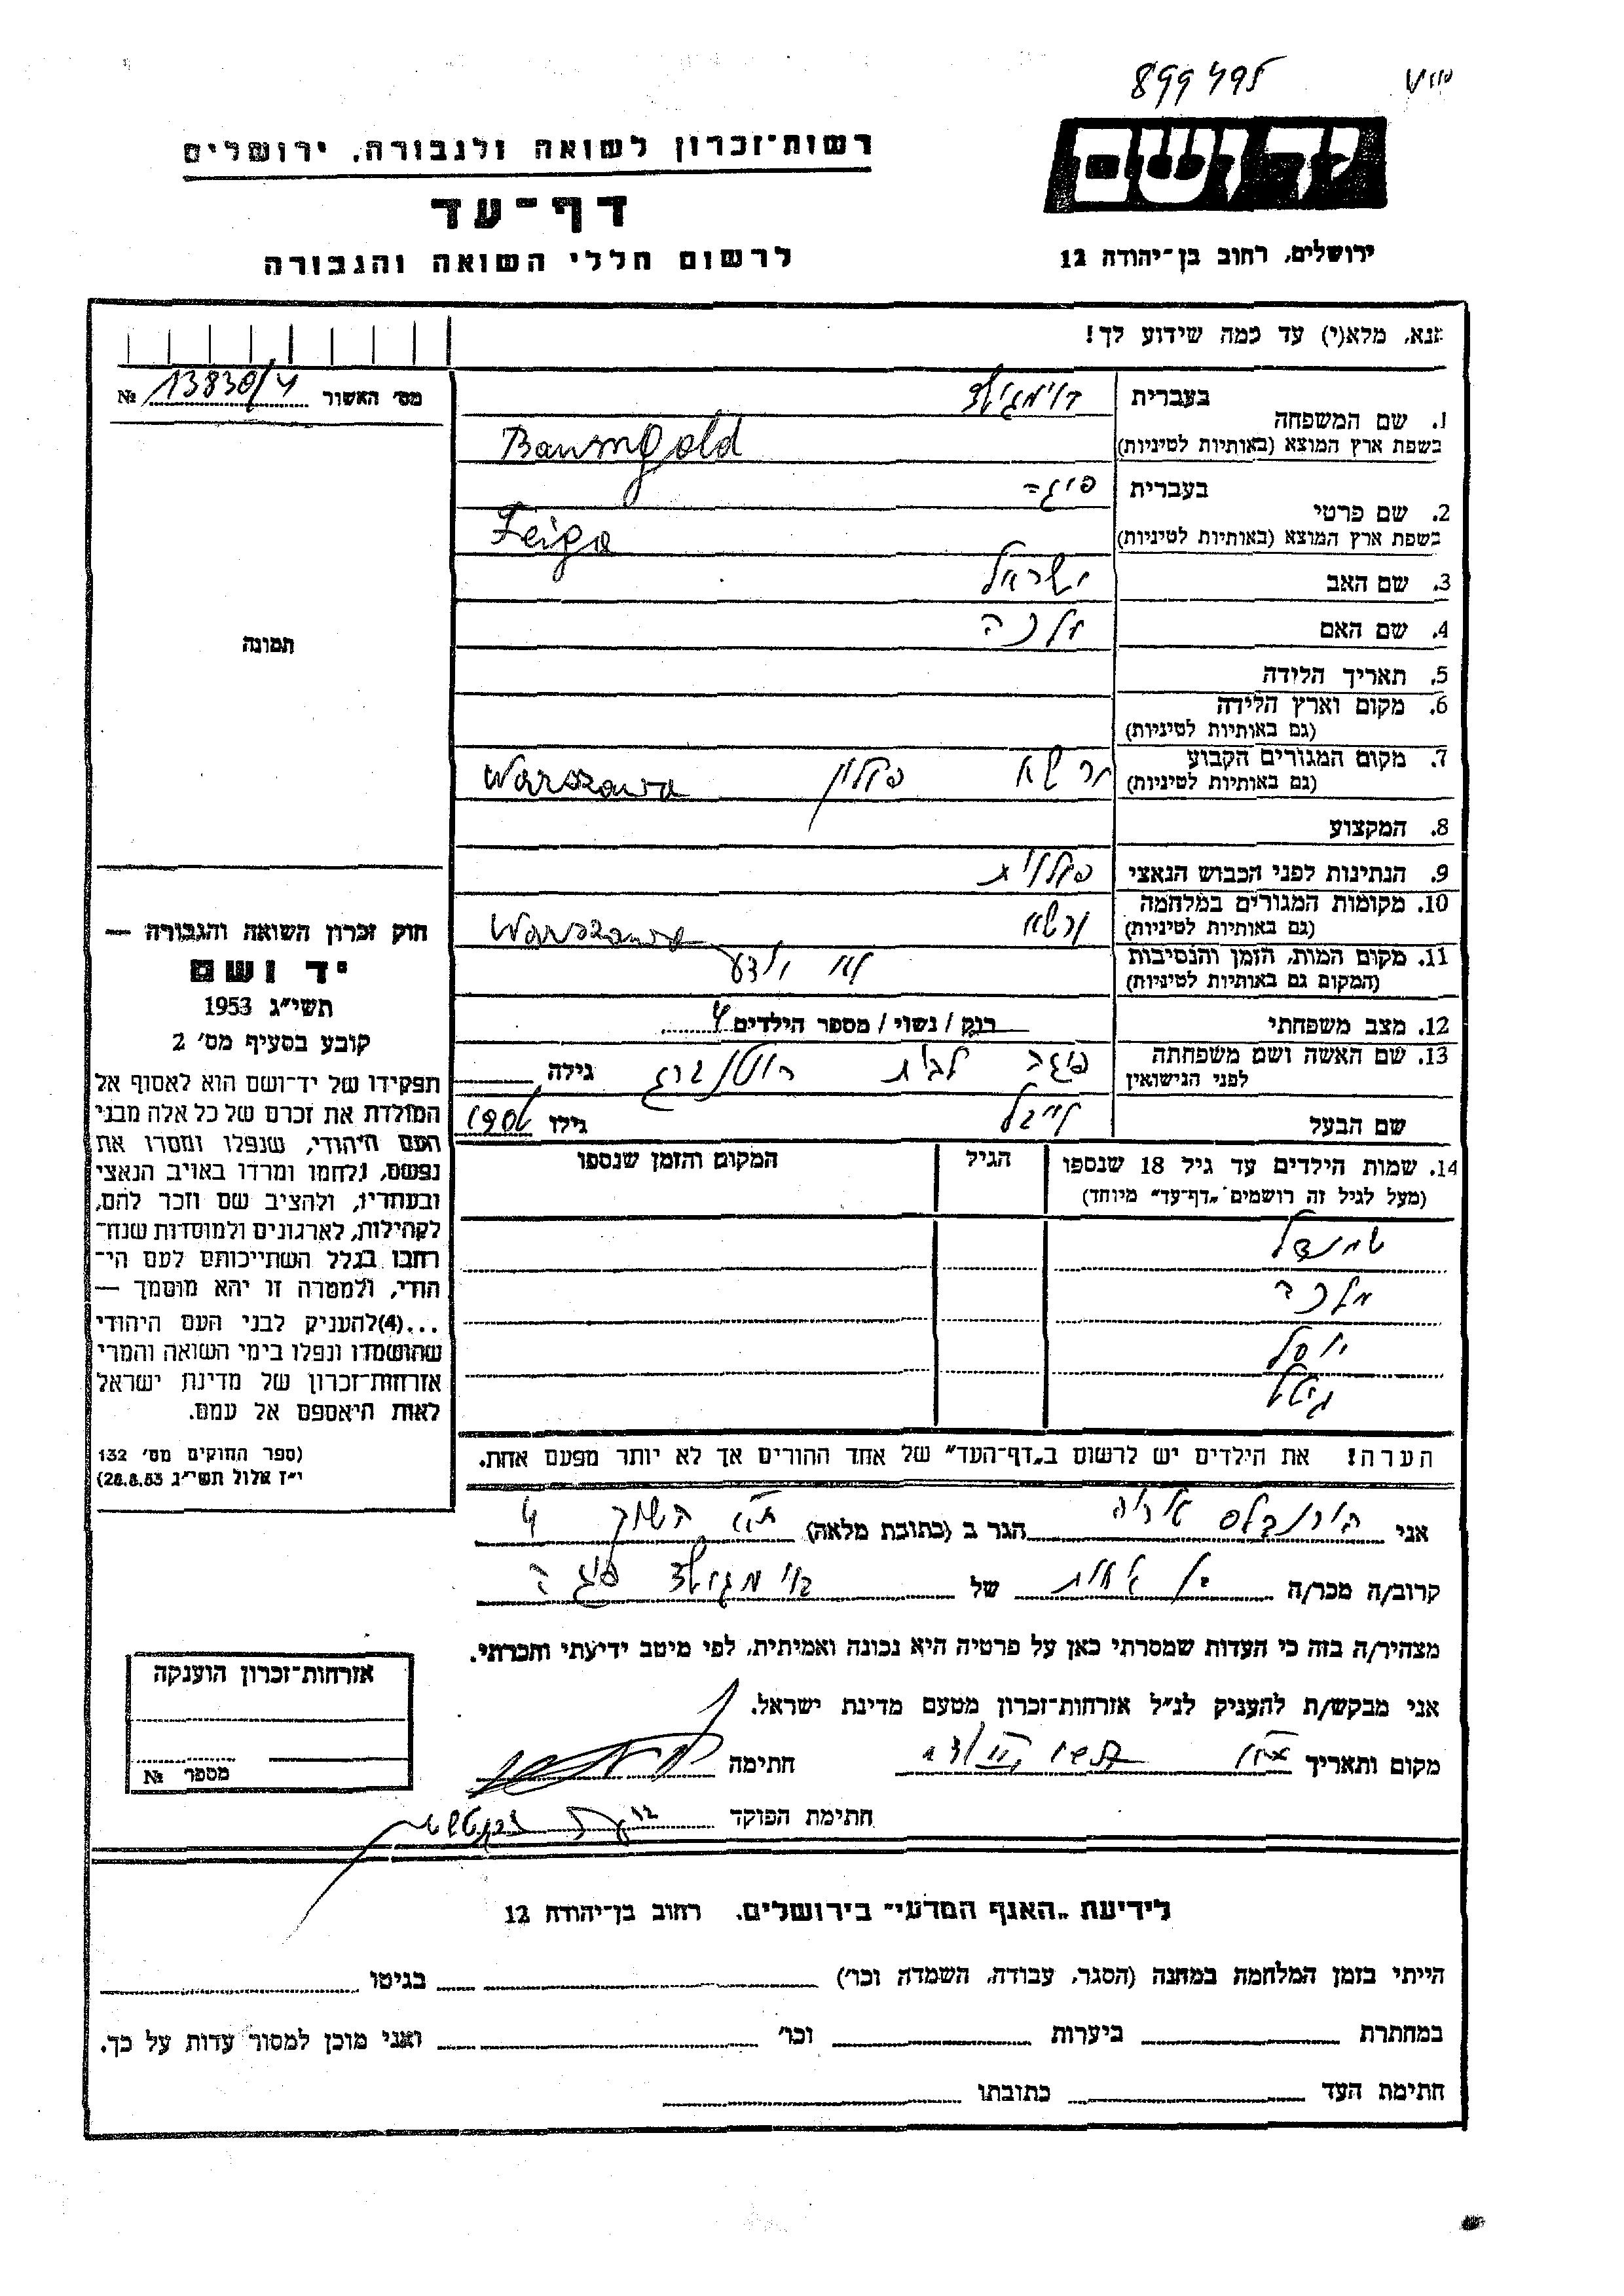 899 495
יד ושם
רשות־זכרון לשואה ולגבורה, ירושלים
דף־עד
לרשום חללי השואה והגבורה
ירושלים, רחוב בן־יהודה 12
אנא, מלא(י) עד כמה שידוע לך!
מס' האשור 13830/4 №
תמונה
1. שם המשפחה
בעברית בוימגולד
בשפת ארץ המוצא (באותיות לטיניות) Baumgold
2. שם פרטי
בעברית פיגה
בשפת ארץ המוצא (באותיות לטיניות) Feiga
3. שם האב ישראל
4. שם האם מלכה
5. תאריך הלידה
6. מקום וארץ הלידה
(גם באותיות לטיניות)
7. מקום המגורים הקבוע ורשא פולין Warszawa
(גם באותיות לטיניות)
8. המקצוע
9. הנתינות לפני הכבוש הנאצי פולנית
10. מקומות המגורים במלחמה ורשא Warszawa
(גם באותיות לטיניות)
11. מקום המות, הזמן והנסיבות לא ידוע
(המקום גם באותיות לטיניות)
12. מצב משפחתי רוק / נשוי / מספר הילדים 4
13. שם האשה ושם משפחתה פיגה לבית רוטנברג גילה
לפני הנישואין
שם הבעל לייבל גילו 1901
14. שמות הילדים עד גיל 18 שנספו הגיל המקום והזמן שנספו
(מעל לגיל זה רושמים „דף־עד" מיוחד)
מלכה
יוסל
גיטל
הערה! את הילדים יש לרשום ב„דף־העד" של אחד ההורים אך לא יותר מפעם אחת.
חוק זכרון השואה והגבורה —
יד ושם
תשי"ג 1953
קובע בסעיף מס' 2
תפקידו של יד־ושם הוא לאסוף אל
המולדת את זכרם של כל אלה מבני
העם היהודי, שנפלו ומסרו את
נפשם, נלחמו ומרדו באויב הנאצי
ובעוזריו, ולהציב שם וזכר להם,
לקהילות, לארגונים ולמוסדות שנח־
רחבו בגלל השתייכותם לעם הי־
הודי, ולמטרה זו יהא מוסמך —
...(4)להעניק לבני העם היהודי
שהושמדו ונפלו בימי השואה והמרי
אזרחות־זכרון של מדינת ישראל
לאות היאספם אל עמם.
(ספר החוקים מס' 132
י"ז אלול תשי"ג 28.8.53)
אני בירנבלט אריה הגר ב (כתובת מלאה) ת"א השוק 4
קרוב/ה מכר/ה של בוימגולד פיגה
מצהיר/ה בזה כי העדות שמסרתי כאן על פרטיה היא נכונה ואמיתית, לפי מיטב ידיעתי והכרתי.
אני מבקש/ת להעניק לנ"ל אזרחות־זכרון מטעם מדינת ישראל.
מקום ותאריך ת"א חתימה
חתימת הפוקד
אזרחות־זכרון הוענקה
מספר №
לידיעת „האגף המדעי" בירושלים, רחוב בן־יהודה 12
הייתי בזמן המלחמה במחנה (הסגר, עבודה, השמדה וכו') בגיטו
במחתרת ביערות וכו' ואני מוכן למסור עדות על כך.
חתימת העד כתובתו